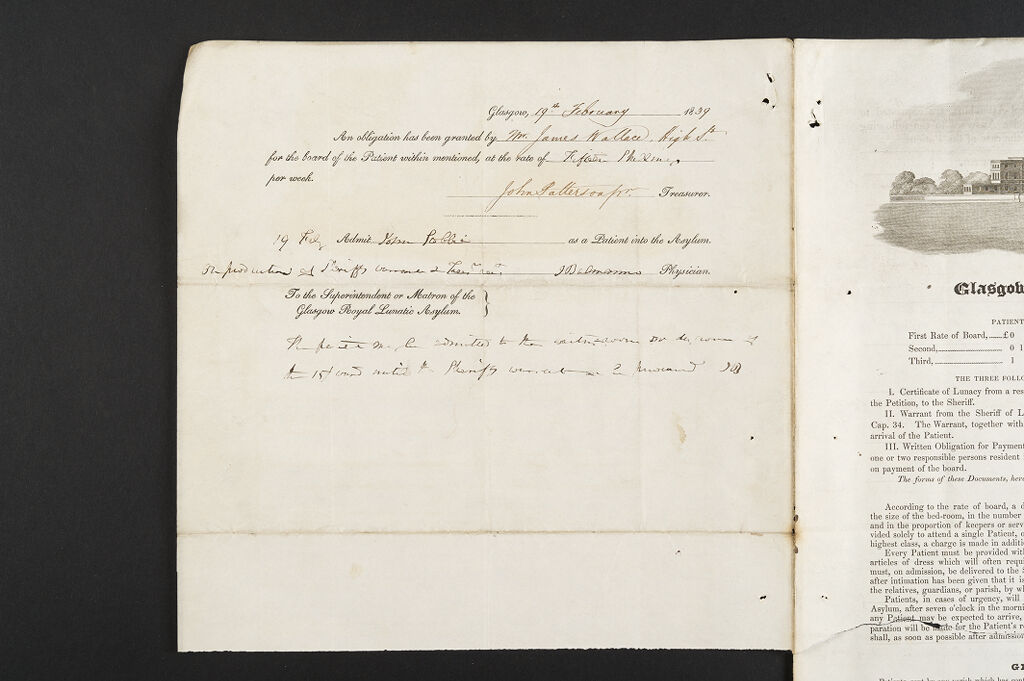 Glasgow, 19th February 1839
An obligation has been granted by Mr. James Wallace, High St.
for the board of the Patient within mentioned, at the rate of Fifteen Shillings
per week.
John Patterson Jr. Treasurer.
19 Feb Admit John as a Patient into the Asylum.
On production of Sheriffs warrant & Physician.
To the Superintendent or Matron of the
Glasgow Royal Lunatic Asylum.
The patient may be admitted to the
the 15/ ward until the Sheriffs warrant is produced
Glasgow
PATIENT
First Rate of Board, £0
Second, 0 1
Third, 1
THE THREE FOLLO
I. Certificate of Lunacy from a res
the Petition, to the Sheriff.
II. Warrant from the Sheriff of L
Cap. 34. The Warrant, together with
arrival of the Patient.
III. Written Obligation for Payment
one or two responsible persons resident
on payment of the board.
The forms of these Documents, here
According to the rate of board, a d
the size of the bed-room, in the number
and in the proportion of keepers or serv
vided solely to attend a single Patient, o
highest class, a charge is made in additi
Every Patient must be provided with
articles of dress which will often requi
must, on admission, be delivered to the S
after intimation has been given that it is
the relatives, guardians, or parish, by wh
Patients, in cases of urgency, will
Asylum, after seven o'clock in the morni
any Patient may be expected to arrive,
paration will be made for the Patient's r
shall, as soon as possible after admission
GE
Patients sent by any parish which has cont